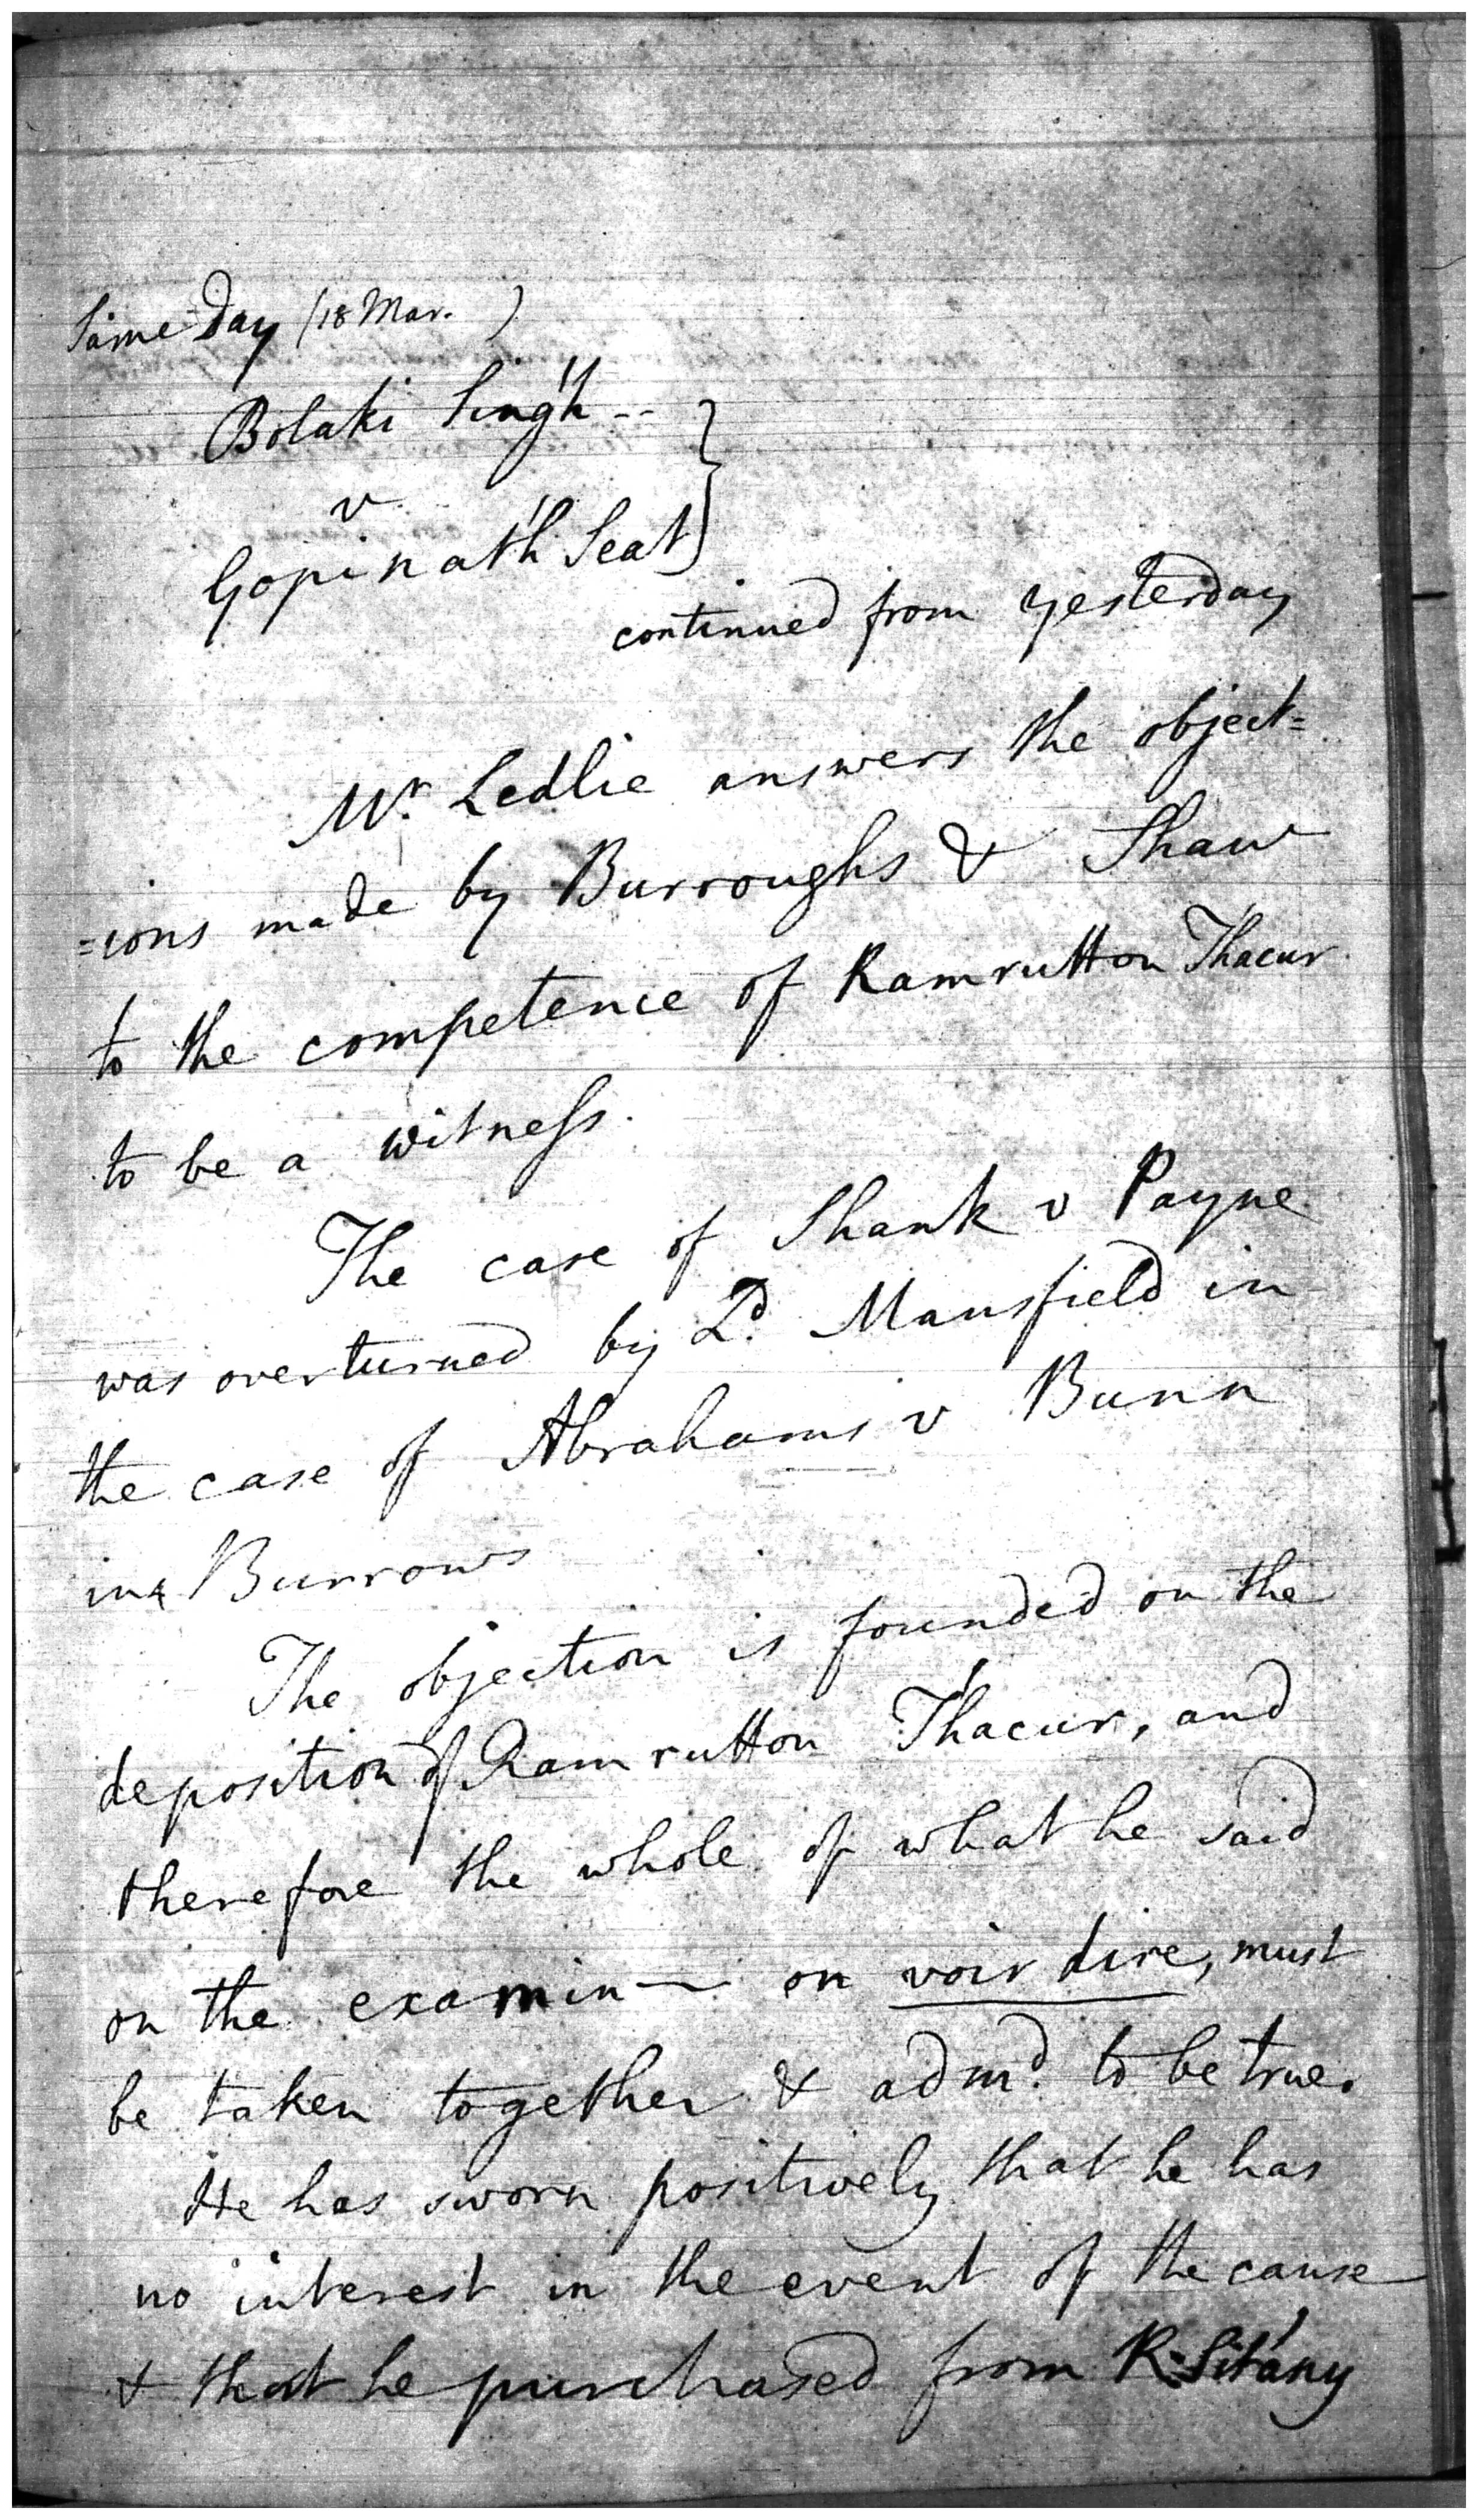 Same Day (18 Mar. )
Bolaki Singh --
v
Gopinath Seat }
continued from yesterday
Mr. Ledlie answers the object=
=ions made by Burroughs & Shaw
to the competence of Ramrutton Thacur
to be a witness.
The case of Shank v Payne
was overturned by Ld. Mansfield in
the case of Abrahams v Bunn
in 4 Burrows
The objection is founded on the
deposition of Ramrutton Thacur, and
therefore the whole of what he said
on the examin— on voir dire, must
be taken together & admd. to be true.
He has sworn positively that he has
no interest in the event of the cause
& that he purchased from R.